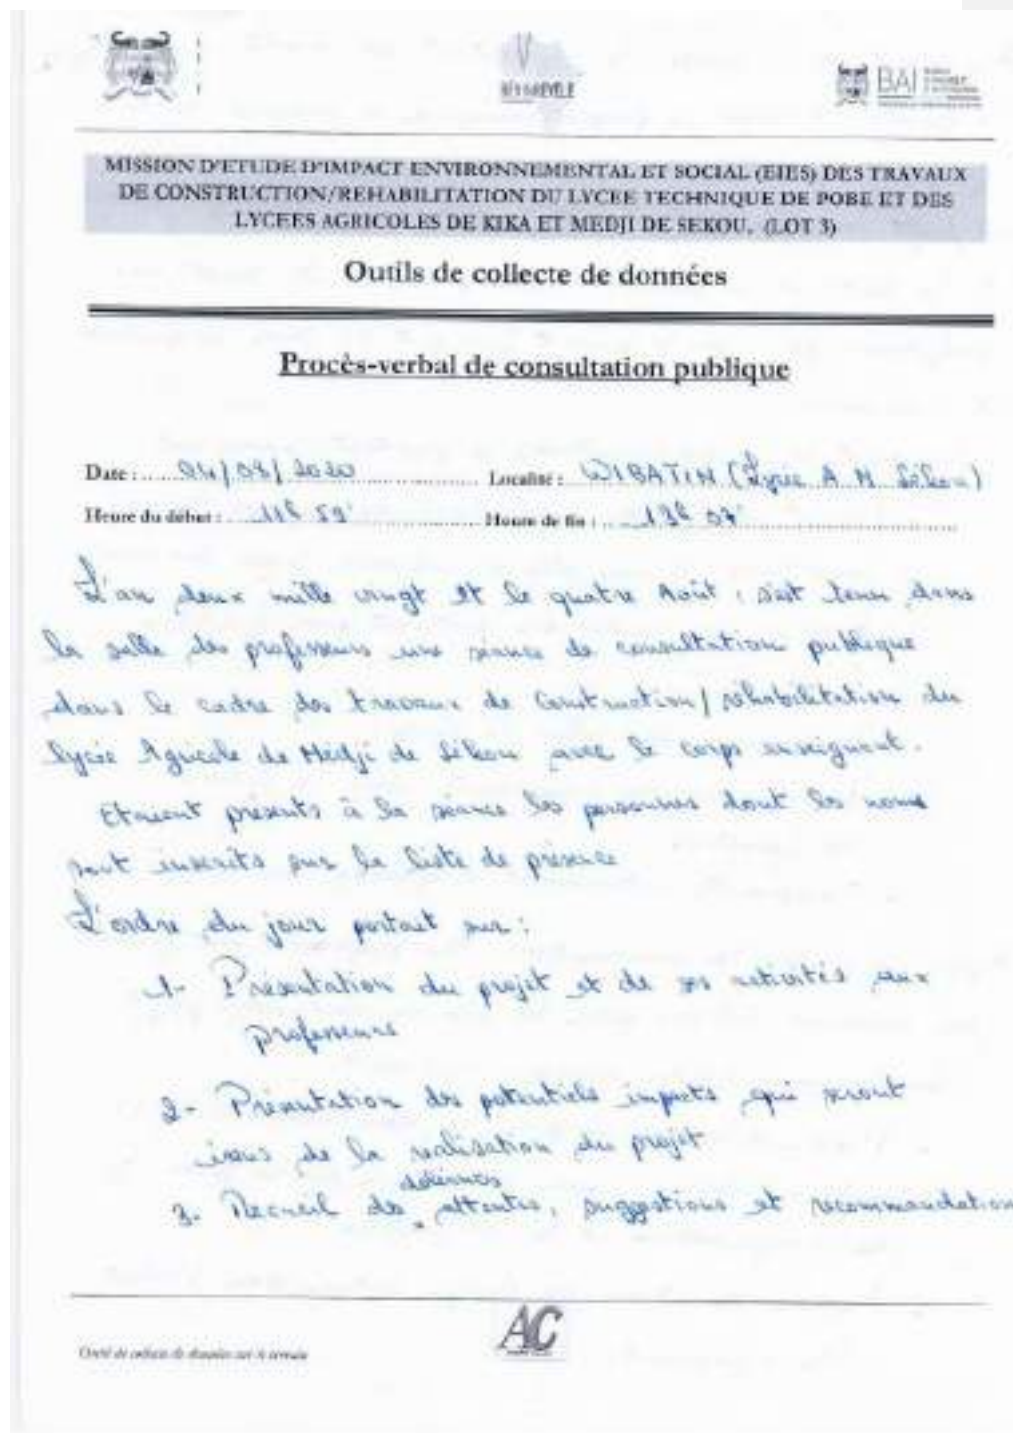 BENIN REVELE
BAI
MISSION D'ETUDE D'IMPACT ENVIRONNEMENTAL ET SOCIAL (EIES) DES TRAVAUX
DE CONSTRUCTION/REHABILITATION DU LYCEE TECHNIQUE DE POBE ET DES
LYCEES AGRICOLES DE KIKA ET MEDJI DE SEKOU. (LOT 3)
Outils de collecte de données
Procès-verbal de consultation publique
Date : 04/08/2020 Localité : WIBATIN (Lycée A M Sékou)
Heure du début : 11h 59' Heure de fin : 13h 07'
L'an deux mille vingt et le quatre Août, s'est tenu dans
la salle des professeurs une séance de consultation publique
dans le cadre des travaux de Construction/réhabilitation du
lycée Agricole de Médji de Sékou avec le corps enseignant.
Etaient présents à la séance les personnes dont les noms
sont inscrits sur la liste de présence
L'ordre du jour portait sur :
1- Présentation du projet et de ses activités aux
professeurs
2- Présentation des potentiels impacts qui seront
issus de la réalisation du projet
doléances
3- Recueil des attentes, suggestions et recommandation
AC
Outil de collecte de données sur le terrain